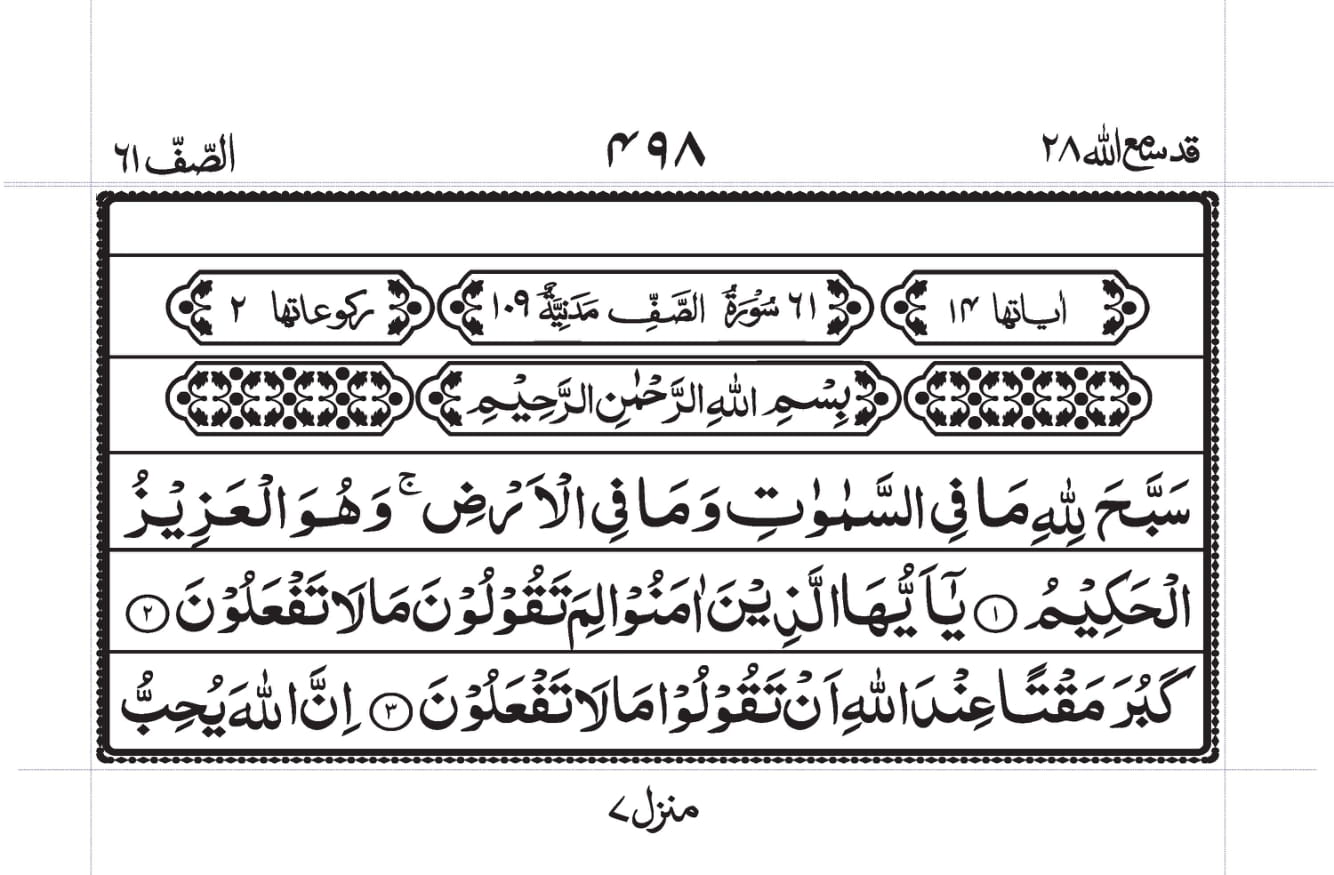 قد سمع الله ٢٨ ۴٩٨ الصّفّ ٦١
اٰیاتها ١۴ ٦١ سُوْرَةُ الصَّفِّ مَدَنِیَّةٌ ١٠٩ رکوعاتها ٢
بِسْمِ اللّٰهِ الرَّحْمٰنِ الرَّحِیْمِ
سَبَّحَ لِلّٰهِ مَا فِی السَّمٰوٰتِ وَمَا فِی الْاَرْضِ ۚ وَهُوَ الْعَزِیْزُ
الْحَكِیْمُ ﴿١﴾ یٰۤاَیُّهَا الَّذِیْنَ اٰمَنُوْا لِمَ تَقُوْلُوْنَ مَا لَا تَفْعَلُوْنَ ﴿٢﴾
كَبُرَ مَقْتًا عِنْدَ اللّٰهِ اَنْ تَقُوْلُوْا مَا لَا تَفْعَلُوْنَ ﴿٣﴾ اِنَّ اللّٰهَ یُحِبُّ
منزل ٧